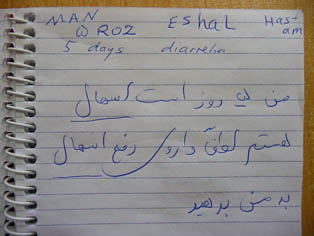 MAN ESHAL Hast-
۵ ROZ am
5 days diarreha
من ۵ روز است اسهال
هستم لطفاً داروی رفع اسهال
به من بدهید